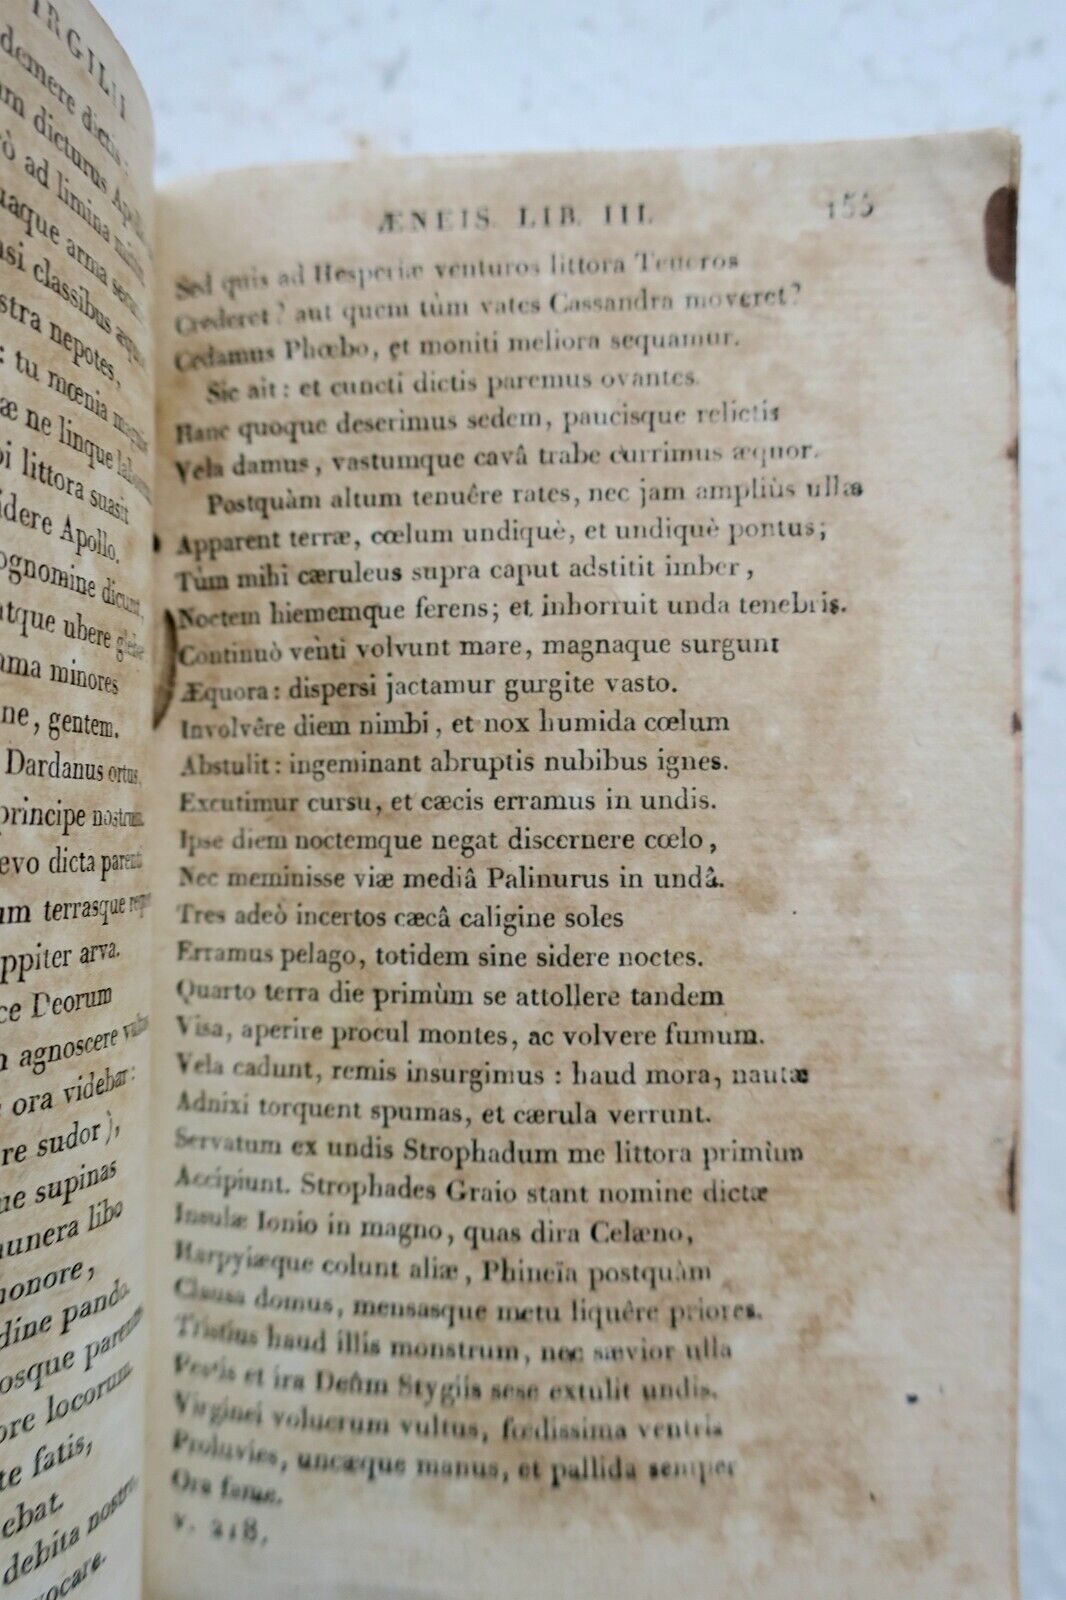 IRGILII
demere dictis:
dicturus
ad limina
quaque arma
classibus
nepotes,
: tu mœnia
ne linque
littora suasit
Apollo.
cognomine dicunt,
atque ubere glebæ
minores
, gentem.
Dardanus ortus,
principe nostrum.
dicta parenti
terrasque
ppiter arva.
Deorum
agnoscere
ora videbar:
sudor),
supinas
munera libo
honore,
pando.
parens
locorum
fatis,
debita
ÆNEIS. LIB. III. 155
Sed quis ad Hesperiæ venturos littora Teucros
Crederet? aut quem tùm vates Cassandra moveret?
Cedamus Phœbo, et moniti meliora sequamur.
Sic ait: et cuncti dictis paremus ovantes.
Hanc quoque deserimus sedem, paucisque relictis
Vela damus, vastumque cavâ trabe currimus æquor.
Postquàm altum tenuêre rates, nec jam ampliùs ullæ
Apparent terræ, cœlum undiquè, et undiquè pontus;
Tùm mihi cæruleus supra caput adstitit imber,
Noctem hiememque ferens; et inhorruit unda tenebris.
Continuò venti volvunt mare, magnaque surgunt
Æquora: dispersi jactamur gurgite vasto.
Involvêre diem nimbi, et nox humida cœlum
Abstulit: ingeminant abruptis nubibus ignes.
Excutimur cursu, et cæcis erramus in undis.
Ipse diem noctemque negat discernere cœlo,
Nec meminisse viæ mediâ Palinurus in undâ.
Tres adeò incertos cæcâ caligine soles
Erramus pelago, totidem sine sidere noctes.
Quarto terra die primùm se attollere tandem
Visa, aperire procul montes, ac volvere fumum.
Vela cadunt, remis insurgimus: haud mora, nautæ
Adnixi torquent spumas, et cærula verrunt.
Servatum ex undis Strophadum me littora primùm
Accipiunt. Strophades Graio stant nomine dictæ
Insulæ Ionio in magno, quas dira Celæno,
Harpyiæque colunt aliæ, Phineïa postquàm
Clausa domus, mensasque metu liquêre priores.
Tristius haud illis monstrum, nec sævior ulla
Pestis et ira Deûm Stygiis sese extulit undis.
Virginei volucrum vultus, fœdissima ventris
Proluvies, uncæque manus, et pallida semper
Ora fame.
v. 218.